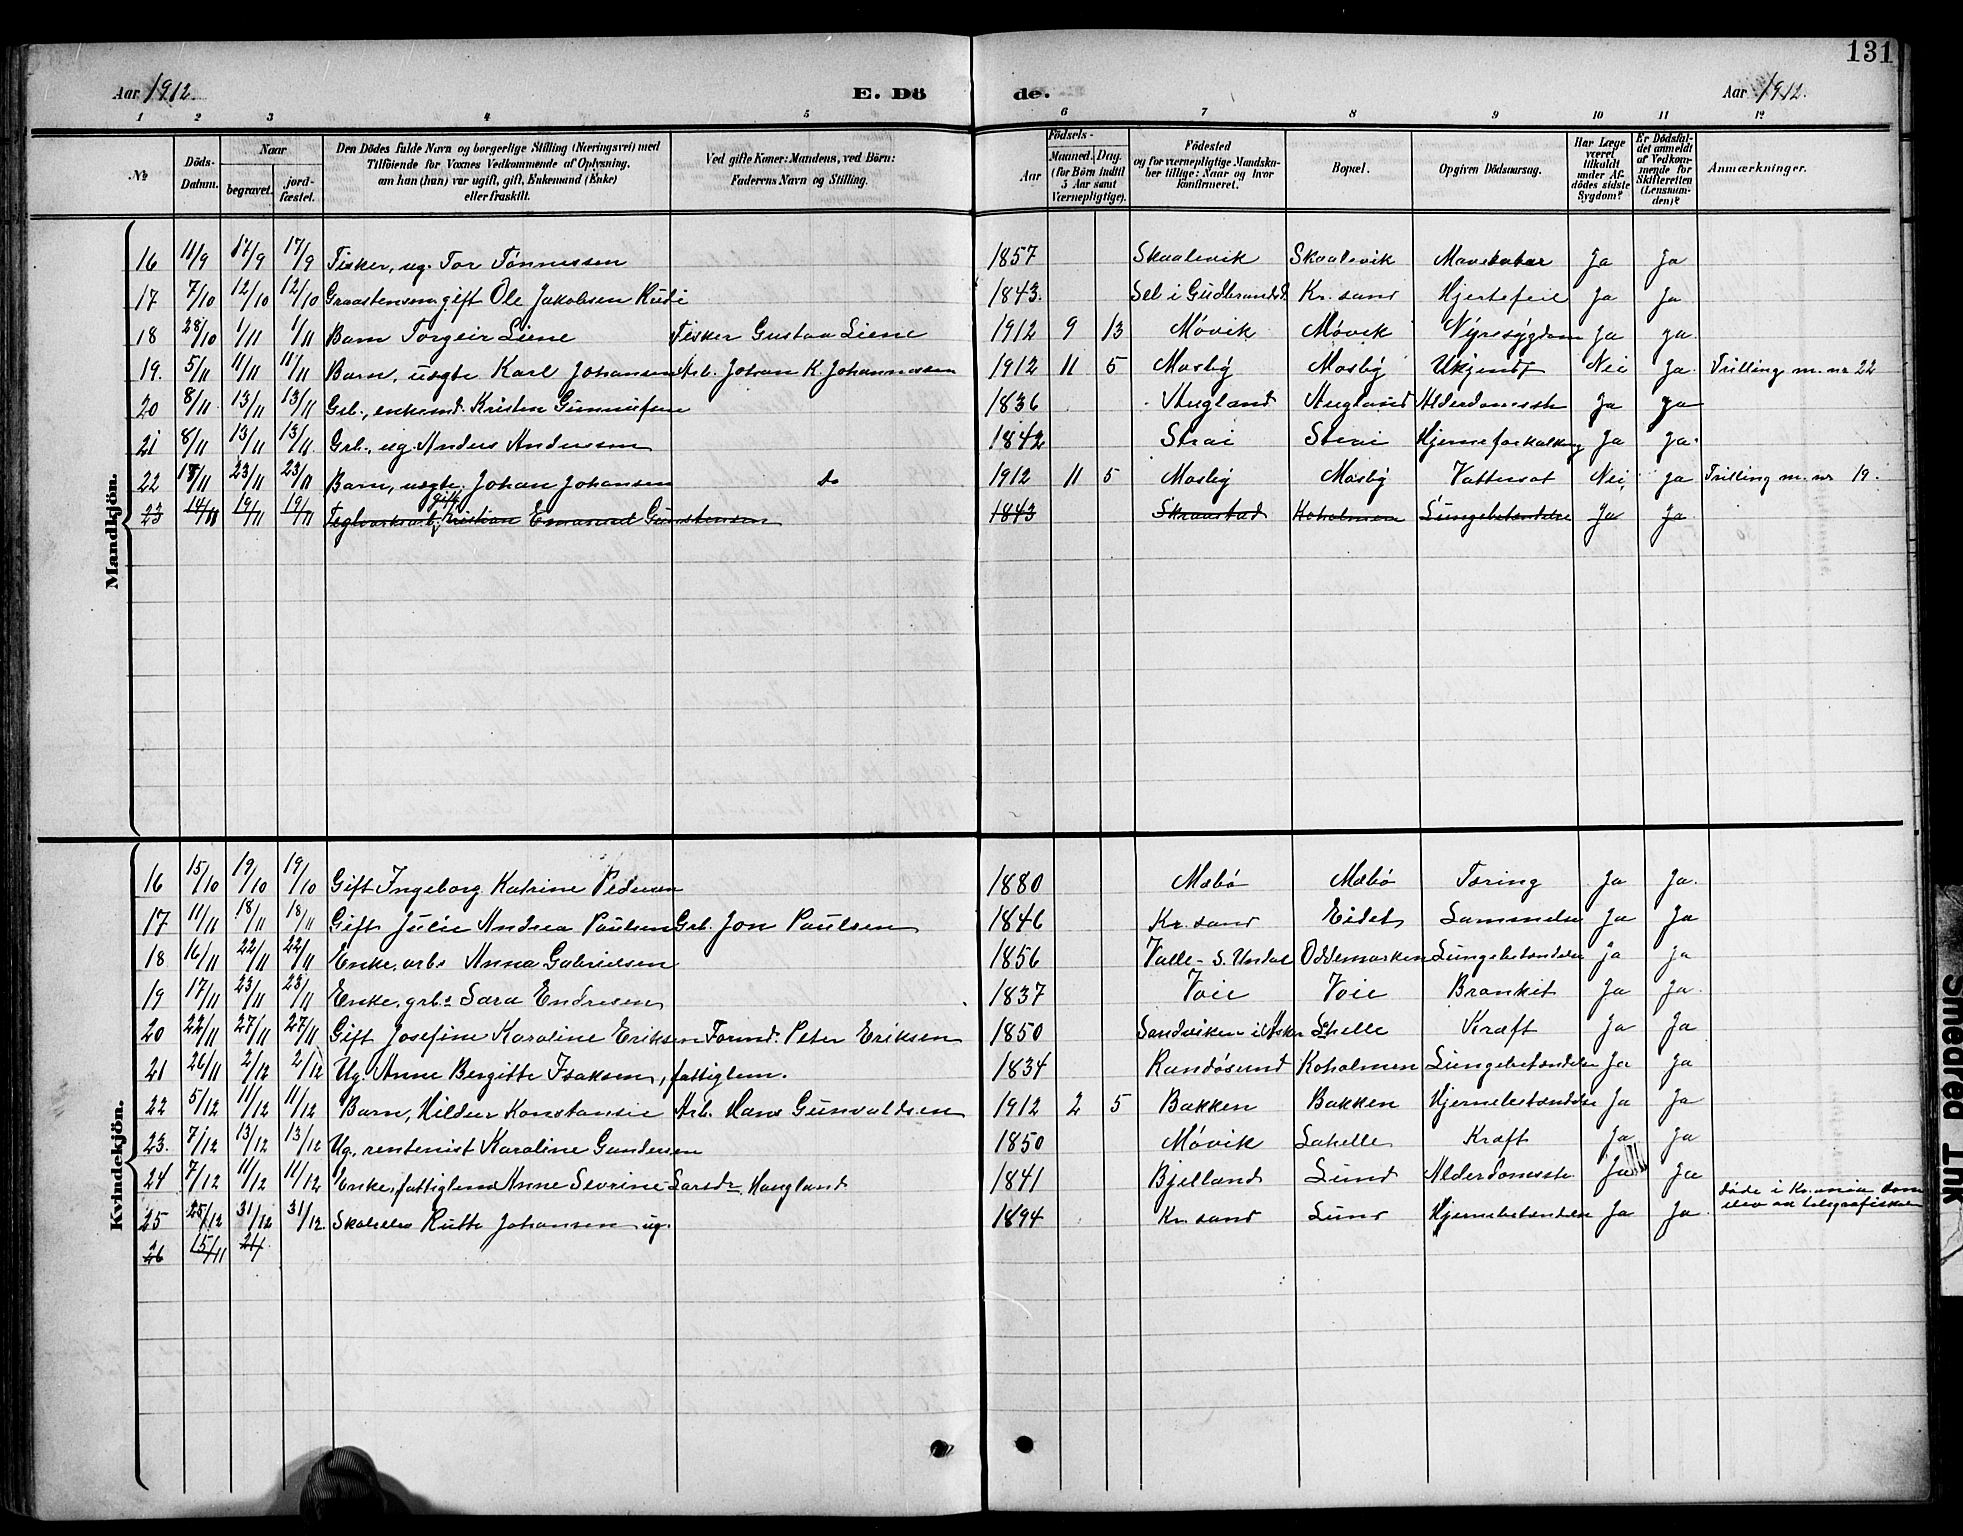 131
Aar 1912. E. Dö de. Aar 1912.
1 2 3 4 5 6 7 8 9 10 11 12
№ Döds-Datum. Naar begravet. jordfæstet. Den Dödes fulde Navn og borgerlige Stilling (Næringsvei) med Tilföiende for Voxnes Vedkommende af Oplysning, om han (hun) var ugift, gift, Enkemand (Enke) eller fraskilt. Ved gifte Koner: Mandens, ved Börn: Faderens Navn og Stilling. Födsels- Aar Maaned. Dag. (for Börn indtil 5 Aar samt Værnepligtige). Födested og for værnepligtige Mandskaber tillige: Naar og hvor konfirmeret. Bopæl. Opgiven Dödsaarsag. Har Læge været tilkaldt under Afdödes sidste Sygdom? Er Dödsfaldet anmeldt af Vedkommende for Skifteretten (Lensmanden)? Anmærkninger.
Mandkjön.
16 11/9 17/9 17/9 Fisker, ug. Tor Tönnessen 1857 Skaalevik Skaalevik Mavekatar Ja Ja
17 7/10 12/10 12/10 gift Ole Jakobsen Rudi 1843. Sel i Gudbrandsd. Kr. sand Hjertefeil Ja Ja
18 28/10 1/11 1/11 Barn Torgeir Liene Fisker Gustav Liene 1912 9 13 Móvik Móvik Nyresygdom Ja ja.
19. 5/11 11/11 11/11 Barn, uegte Karl Johansen Arb. Johan K. Johannessen 1912 11 5 Mosby Mosby Ukjendt Nei Ja. Trilling m. nr 22
20 8/11 13/11 13/11 Grb., enkemd. Kristen Gunnufsen 1836 Augland Augland Alderdomssv. Ja ja
21 8/11 13/11 13/11 Grb., ug. Anders Anderssen 1842 Strai Strai Hjerneforkalkng Ja Ja.
22 17/11 23/11 23/11 Barn, uegte. Johan Johansen do 1912 11 5 Mosby Mosby Vattersot Nei, ja Trilling m. nr 19.
23 14/11 19/11 19/11 Teglverksarb. gift Kristian Emanuel Gunstensen 1843 Skraastad Koholmen Lungebetændelse Ja Ja.
Kvindekjön.
16 15/10 19/10 19/10 Gift Ingeborg Katrine Pedersen 1880 Mebø Mebø Tæring Ja Ja.
17 11/11 18/11 18/11 Gift Julie Andrea Paulsen Grb. Jon Paulsen 1846 Kr. sand Eidet Lammelse Ja Ja
18 16/11 22/11 22/11 Enke, arb. Anna Gabrielsen 1856 Valle - S. Undal Oddemarken Lungebetændelse ja Ja
19 17/11 23/11 23/11 Enke, grbs Sara Endresen 1837 Voie Voie Bronkit Ja Ja.
20 22/11 27/11 27/11 Gift Josefine Karoline Eriksen Formd. Peter Eriksen 1850 Sandviken i Asker Lahelle Kræft Ja Ja
21 26/11 2/12 2/12 Ug. Anne Bergitte Isaksen, fattiglem. 1834 Randøsund Koholmen Lungebetændelse Ja Ja
22 5/12 11/12 11/12 Barn, Hildur Konstansie Arb. Hans Gunvaldsen 1912 2 5 Bakken Bakken Hjernebetændelse Ja Ja
23. 7/12 13/12 13/12 Ug. rentenist Karoline Gundersen 1850 Móvik Lahelle Kræft Ja Ja
24 7/12 11/12 11/12 Enke, fattiglem Anne Sevrine Larsdr. Haugland 1841 Bjelland Lund Alderdomssv. Ja Ja
25 25/12 31/12 31/12. Ruth Johansen ug. 1894 Kr. sand Lund Hjernebetændelse Ja Ja. døde i Kr.ania som elev ad telegrafiskolen
26 15/11 21/
Smedred Ink